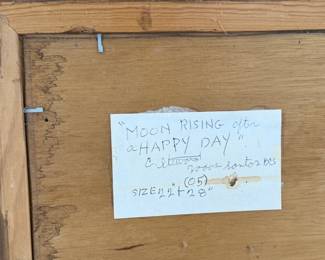 "MOON RISING after
a HAPPY DAY"
2000 Santos
(05)
SIZE 22" + 28"